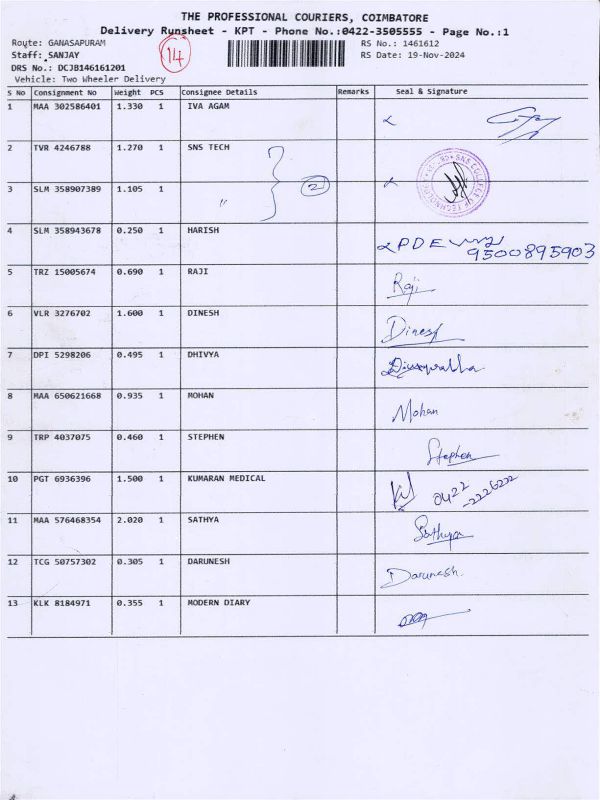 THE PROFESSIONAL COURIERS, COIMBATORE
Delivery Runsheet - KPT - Phone No.:0422-3505555 - Page No.:1
Route: GANASAPURAM 14 RS No.: 1461612
Staff: SANJAY RS Date: 19-Nov-2024
DRS No.: DCJB146161201
Vehicle: Two Wheeler Delivery
S No Consignment No Weight PCS Consignee Details Remarks Seal & Signature
1 MAA 302586401 1.330 1 IVA AGAM
2 TVR 4246788 1.270 1 SNS TECH
SNS COLLEGE OF TECHNOLOGY
3 SLM 358907389 1.105 1 " 2
4 SLM 358943678 0.250 1 HARISH
9500895903
5 TRZ 15005674 0.690 1 RAJI Raji
6 VLR 3276702 1.600 1 DINESH Dinesh
7 DPI 5298206 0.495 1 DHIVYA
8 MAA 650621668 0.935 1 MOHAN Mohan
9 TRP 4037075 0.460 1 STEPHEN Stephen
10 PGT 6936396 1.500 1 KUMARAN MEDICAL 0422
-2226222
11 MAA 576468354 2.020 1 SATHYA Sathya
12 TCG 50757302 0.305 1 DARUNESH Darunesh
13 KLK 8184971 0.355 1 MODERN DIARY